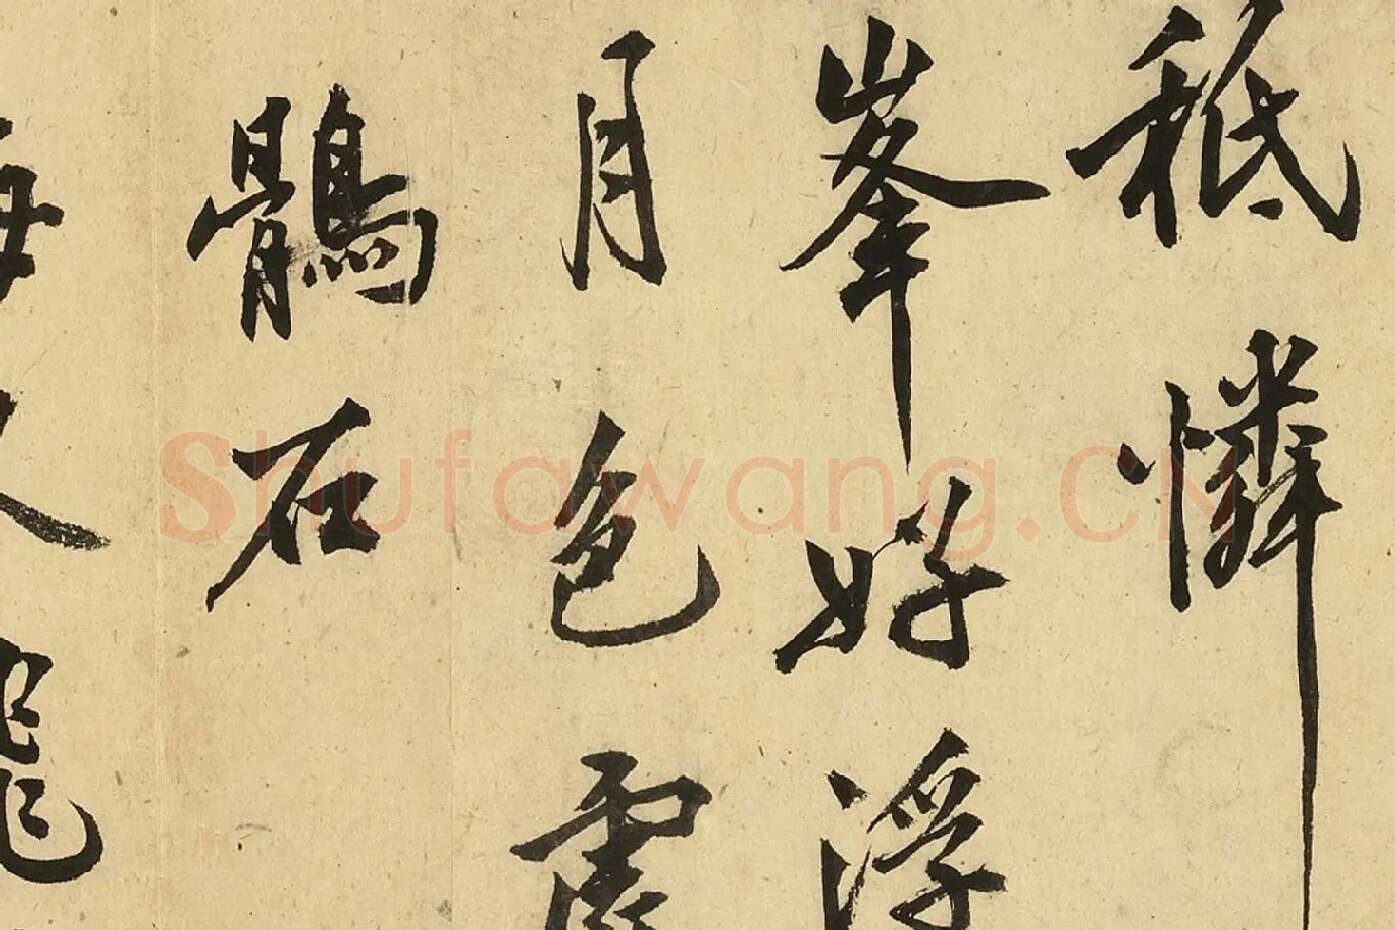 秖憐
峯好浮
月色
鶻石
Shufawang.CN